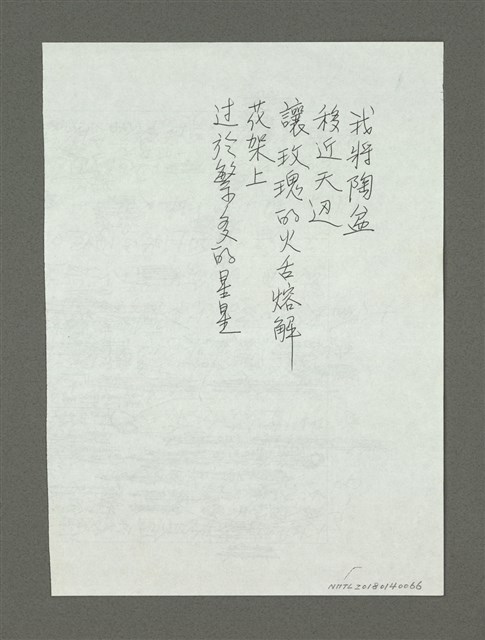 我將陶盆
移近天边
讓玫瑰的火舌熔解
花架上
过於繁多的星星
NMTL20180140066